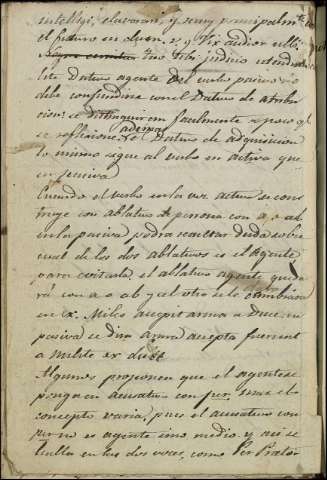 intelligi, elaborari, y muy principalmte
el futuro en dus, a, y Vix audior ulli
tuo tibi judicio utendum
Este dativo agente del verbo pasivo no
debe confundirse con el Dativo de atribu
cion: se distinguiran facilmente a poco q.
se reflexione. ademas el Dativo de adquisicion
lo mismo sigue al verbo en activa que
en pasiva
Cuando el verbo en la voz activa se cons
truye con ablativo de persona con a, o ab
en la pasiva podra resultar duda sobre
cual de los dos ablativos es el agente
para evitarla, el ablativo agente queda
rá con a o ab y el otro se cambiará
en ex. Miles accepit arma a duce en
pasiva se dira arma accepta fuerunt
a Milite ex duce
Algunos proponen que el agente se
ponga en acusativo con per, mas el
concepto varia, pues el acusativo con
per no es agente sino medio y asi se
halla en las dos voces, como Per Prætor